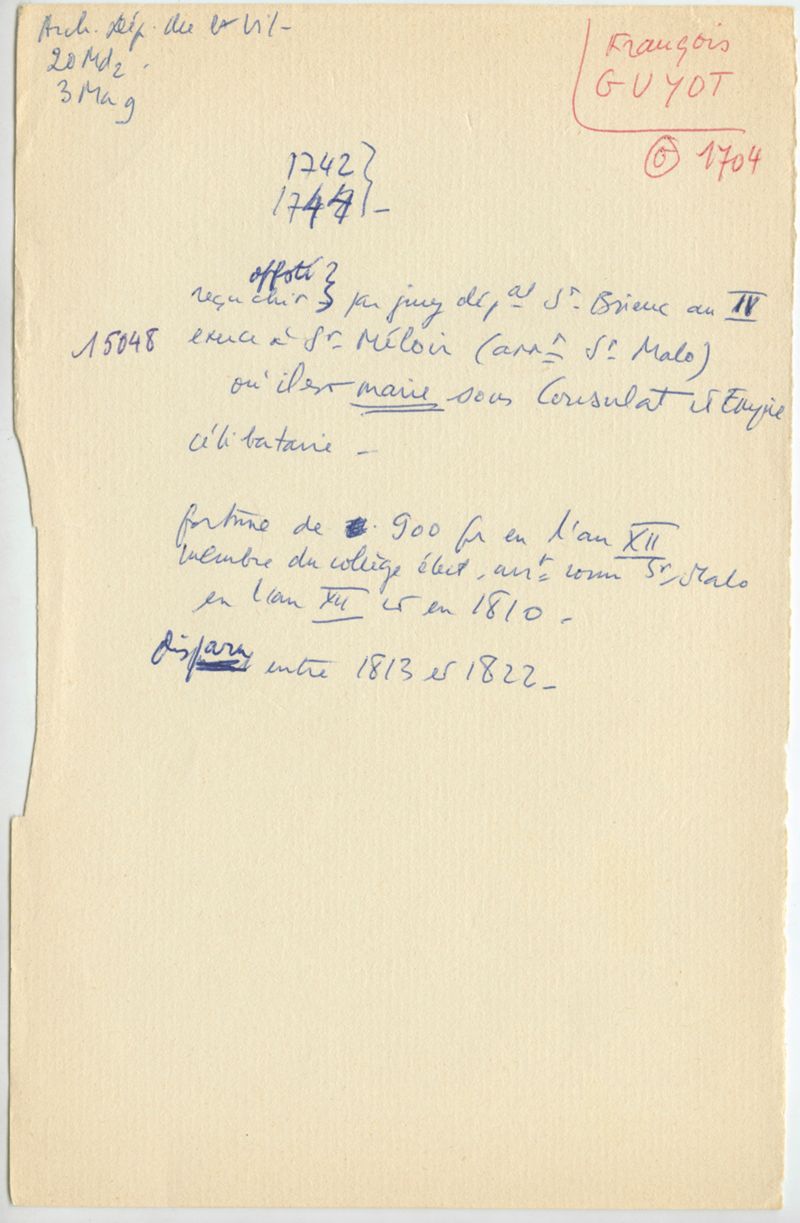 Arch. Dép. Ile et Vil-
20 Md2.
3 M a 9
François
GUYOT
1704
1742 }
1744 } -
off sté }
reçu chir } par jury dépal St- Brieuc an IV
15048 exerce à St- Méloir (arrt St Malo)
où il est maire sous Consulat et Empire
célibataire -
fortune de 900 fr en l'an XII
membre du collège élect. arrt comm St-Malo
en l'an XII et en 1810 -
disparu entre 1813 et 1822 -